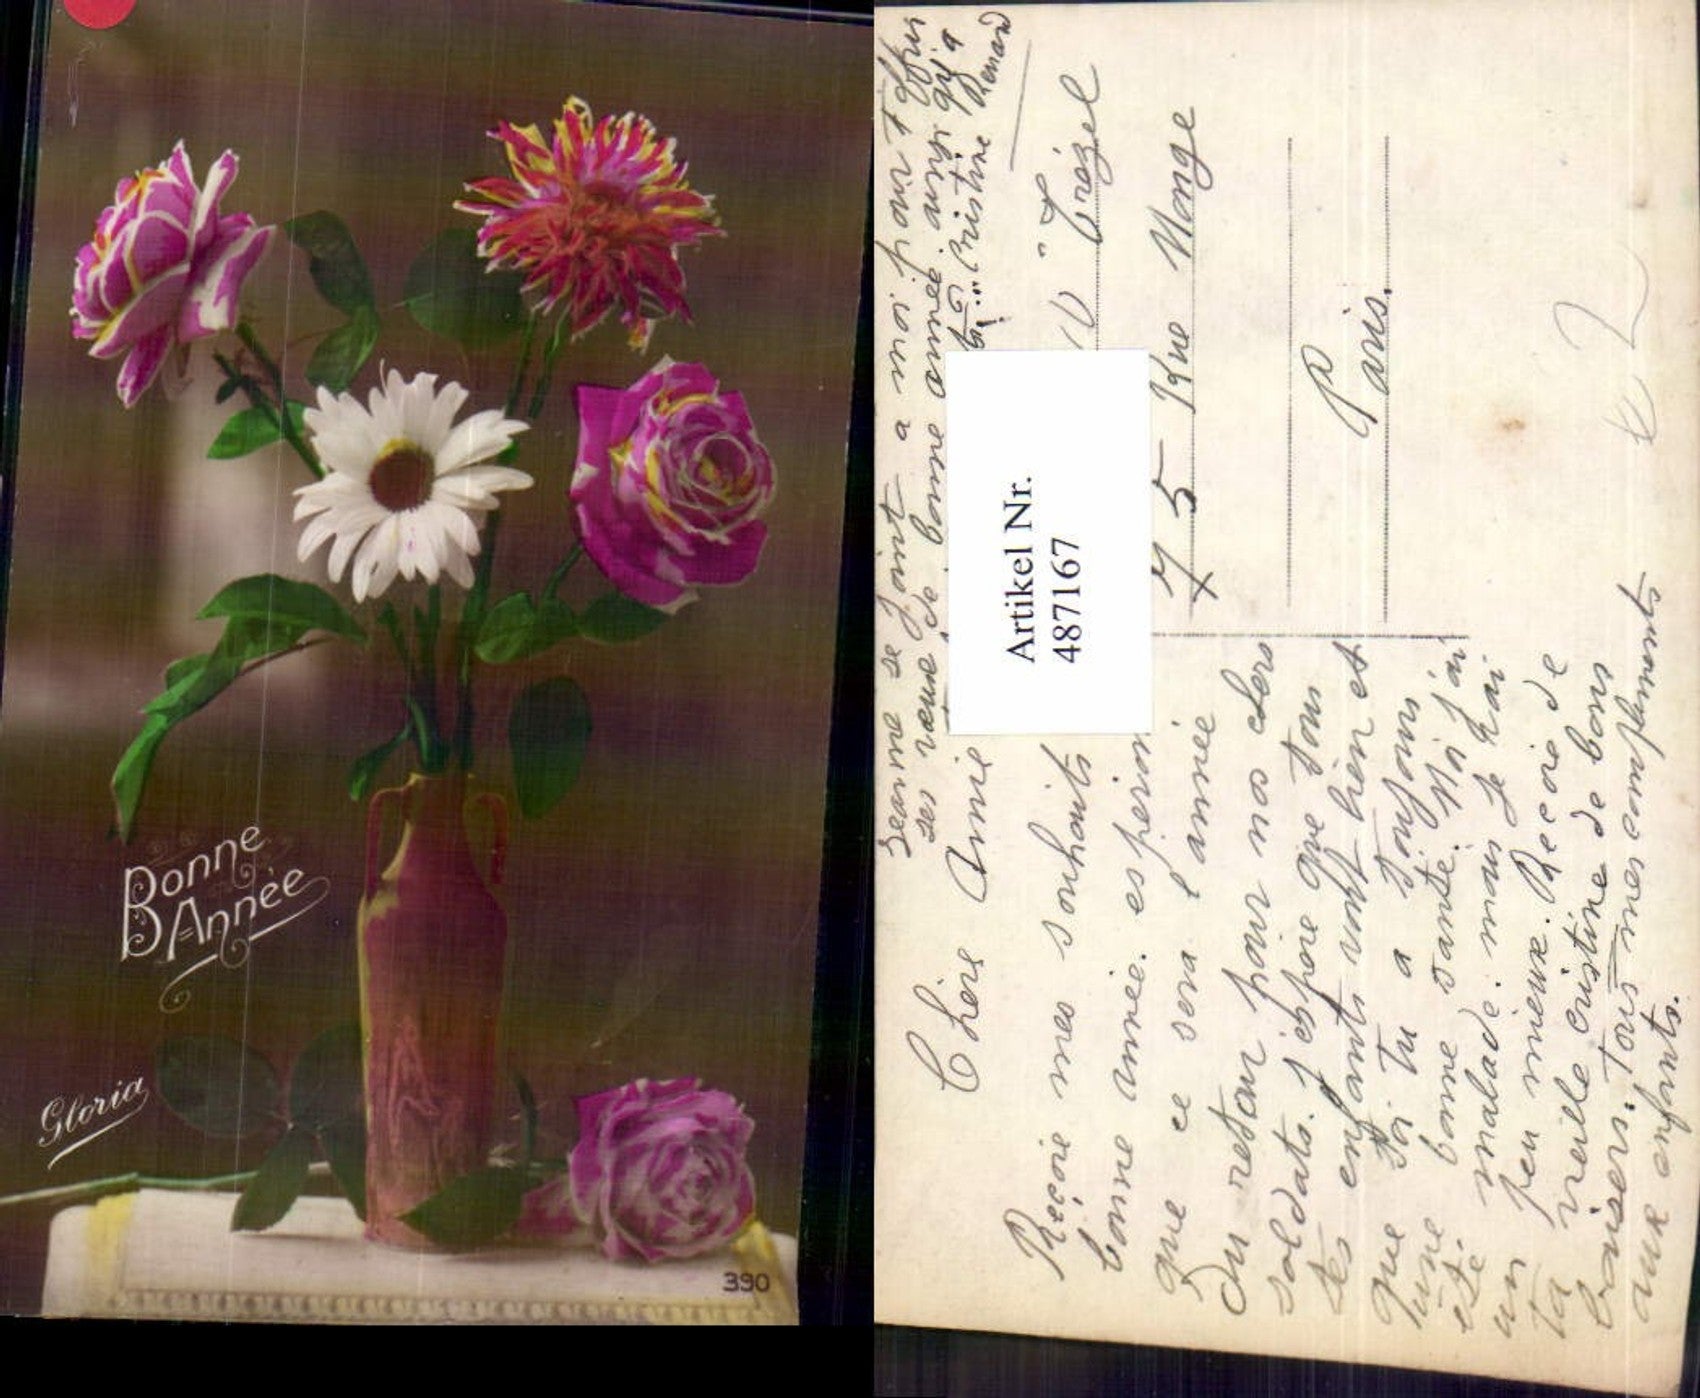 Bonne
Année
Gloria
390
Jeanne se Joint a moi pour t'offrir
ses vœux de bonne année. ainsi qu'a
Cristine Renard
Artikel Nr.
487167
Trézel
75 Rue Monge
Paris.
Chère Amie
Reçoie mes souhaits
bonne année. esperon
que ce sera l'année
du retour pour nos chers
soldats. j'espoire que tous
tes enfants vont bien et
que toi tu a toujours
une bonne santé. Moi j'ai
été malade. mais je vai
un peu mieux. Reçoie de
ta vieille cristine de bons
baisers. tous mes compliments
aux enfants.